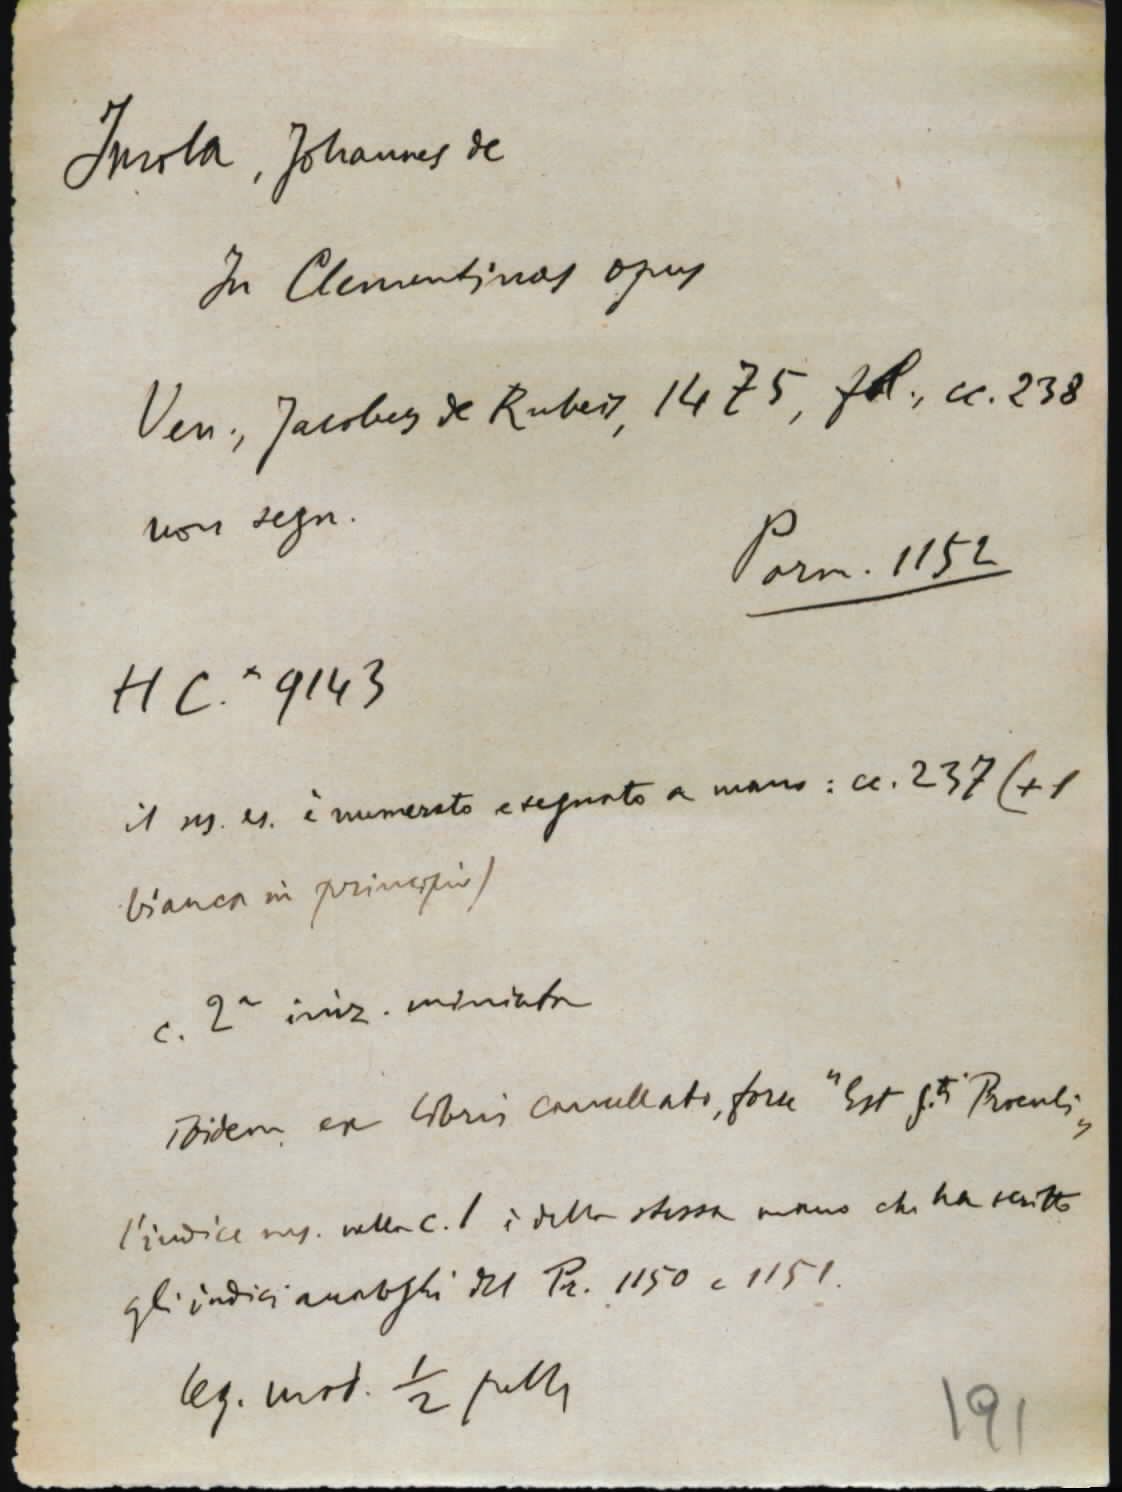 Imola, Johannes de
In Clementinas opus
Ven., Jacobus de Rubeis, 1475, fol., cc. 238
non segn.
Parm. 1152
H C.* 9143
il ns. es. è numerato e segnato a mano : cc. 237 (+ 1
bianca in principio)
c. 2ª iniz. miniata
Ibidem ex libris cancellato, forse "Est
l'indice ms. nella c. 1 è della stessa mano che ha scritto
gli indici analoghi del Pr. 1150 e 1151.
leg. mod. 1/2 pelle
191